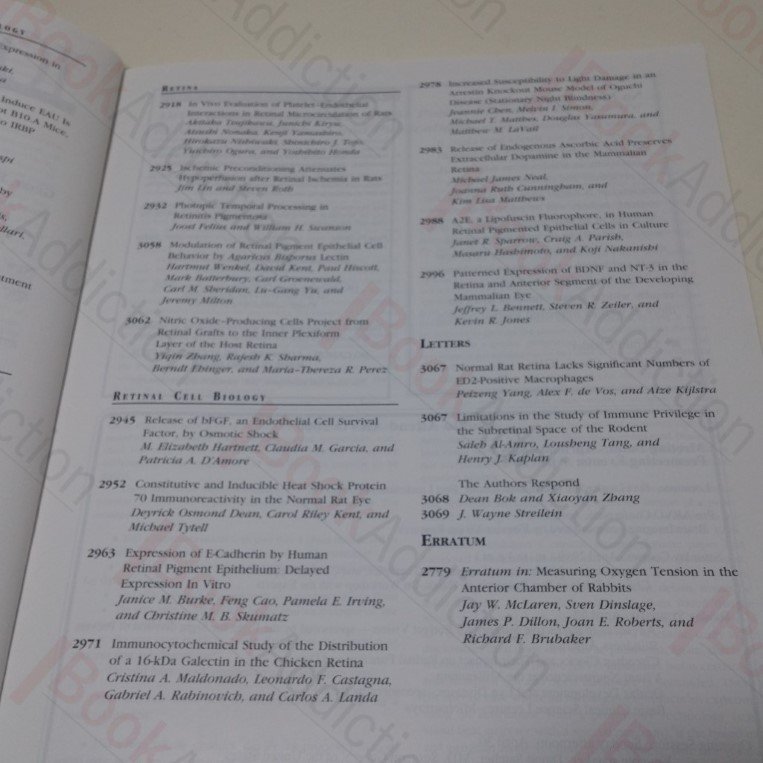 OLOGY
Expression in
Induce EAU Is
B10.A Mice,
o IRBP
by
tment
RETINA
2918 In Vivo Evaluation of Platelet–Endothelial
Interactions in Retinal Microcirculation of Rats
Akitaka Tsujikawa, Junichi Kiryu,
Atsushi Nonaka, Kenji Yamashiro,
Hirokazu Nishiwaki, Shinichiro J. Tojo,
Yuichiro Ogura, and Yoshihito Honda
2925 Ischemic Preconditioning Attenuates
Hypoperfusion after Retinal Ischemia in Rats
Jim Lin and Steven Roth
2932 Photopic Temporal Processing in
Retinitis Pigmentosa
Joost Felius and William H. Swanson
3058 Modulation of Retinal Pigment Epithelial Cell
Behavior by Agaricus Bisporus Lectin
Hartmut Wenkel, David Kent, Paul Hiscott,
Mark Batterbury, Carl Groenewald,
Carl M. Sheridan, Lu-Gang Yu, and
Jeremy Milton
3062 Nitric Oxide–Producing Cells Project from
Retinal Grafts to the Inner Plexiform
Layer of the Host Retina
Yiqin Zhang, Rajesh K. Sharma,
Berndt Ehinger, and Maria-Thereza R. Perez
RETINAL CELL BIOLOGY
2945 Release of bFGF, an Endothelial Cell Survival
Factor, by Osmotic Shock
M. Elizabeth Hartnett, Claudia M. Garcia, and
Patricia A. D'Amore
2952 Constitutive and Inducible Heat Shock Protein
70 Immunoreactivity in the Normal Rat Eye
Deyrick Osmond Dean, Carol Riley Kent, and
Michael Tytell
2963 Expression of E-Cadherin by Human
Retinal Pigment Epithelium: Delayed
Expression In Vitro
Janice M. Burke, Feng Cao, Pamela E. Irving,
and Christine M. B. Skumatz
2971 Immunocytochemical Study of the Distribution
of a 16-kDa Galectin in the Chicken Retina
Cristina A. Maldonado, Leonardo F. Castagna,
Gabriel A. Rabinovich, and Carlos A. Landa
2978 Increased Susceptibility to Light Damage in an
Arrestin Knockout Mouse Model of Oguchi
Disease (Stationary Night Blindness)
Jeannie Chen, Melvin I. Simon,
Michael T. Matthes, Douglas Yasumura, and
Matthew M. LaVail
2983 Release of Endogenous Ascorbic Acid Preserves
Extracellular Dopamine in the Mammalian
Retina
Michael James Neal,
Joanna Ruth Cunningham, and
Kim Lisa Matthews
2988 A2E, a Lipofuscin Fluorophore, in Human
Retinal Pigmented Epithelial Cells in Culture
Janet R. Sparrow, Craig A. Parish,
Masaru Hashimoto, and Koji Nakanishi
2996 Patterned Expression of BDNF and NT-3 in the
Retina and Anterior Segment of the Developing
Mammalian Eye
Jeffrey L. Bennett, Steven R. Zeiler, and
Kevin R. Jones
LETTERS
3067 Normal Rat Retina Lacks Significant Numbers of
ED2-Positive Macrophages
Peizeng Yang, Alex F. de Vos, and Aize Kijlstra
3067 Limitations in the Study of Immune Privilege in
the Subretinal Space of the Rodent
Saleh Al-Amro, Lousheng Tang, and
Henry J. Kaplan
The Authors Respond
3068 Dean Bok and Xiaoyan Zhang
3069 J. Wayne Streilein
ERRATUM
2779 Erratum in: Measuring Oxygen Tension in the
Anterior Chamber of Rabbits
Jay W. McLaren, Sven Dinslage,
James P. Dillon, Joan E. Roberts, and
Richard F. Brubaker